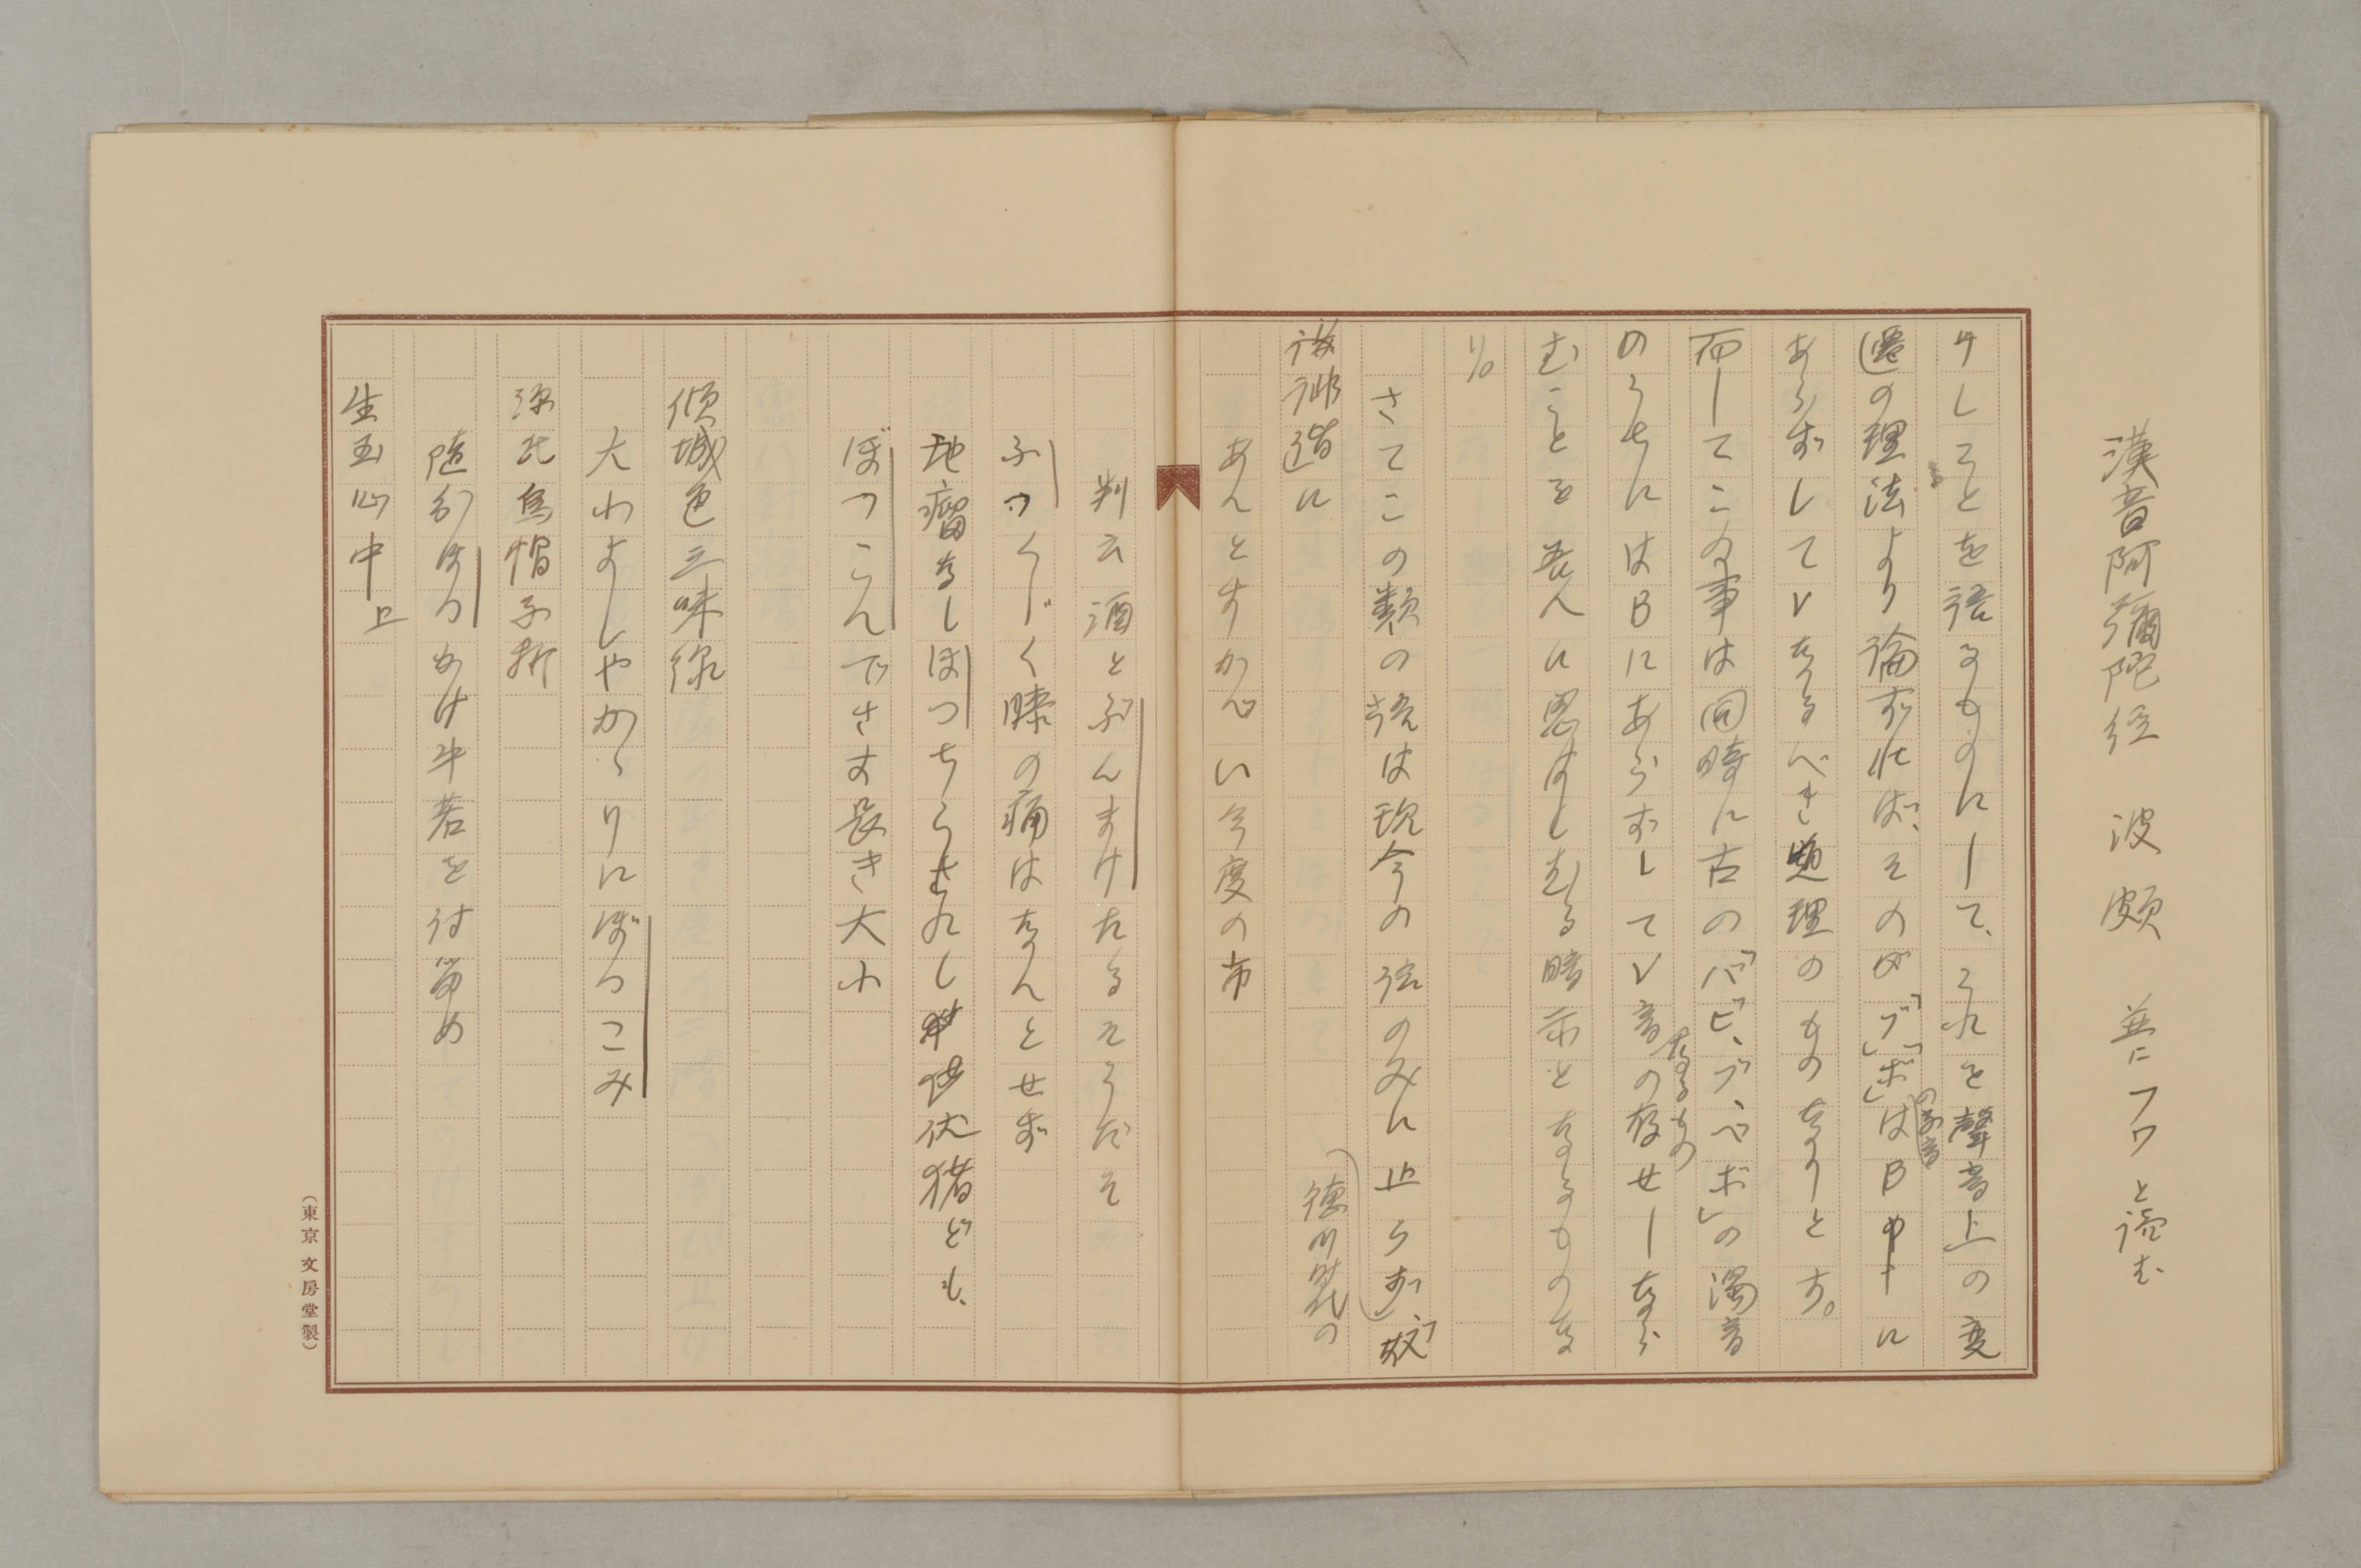 漢音阿彌陀経 波 頗 並ニフワと読む
けしことを語るものにして、これを聲音上の変
遷の理法より論ずれば、そのが「ブ」「ボ」の子音はB中に
あらずしてVなるべき題理のものなりとす。
而してこの事は同時に古の「バビ、ブ、ベボ」の濁音
なるもの
のうちにはBにあらずしてV音の存せしなら
むことを吾人に思はしむる暗示となるものな
り。
さてこの類の語は現今の語のみに止らず、「敬
徳川時代の
俳諧に
あんとすかぺい今度の市
判云酒とぶんまけたるそうだそ
ふつくじく膝の痛はなんとせず
地瘤なしほつちらされし 供伏猪ども、
ぼつこんでさす長き大小
傾城色三味線
大わよしやかゝりにぼつこみ
源氏烏帽子折
随分ほつかけ牛若を討留め
生玉心中 上
(東京 文房堂製)